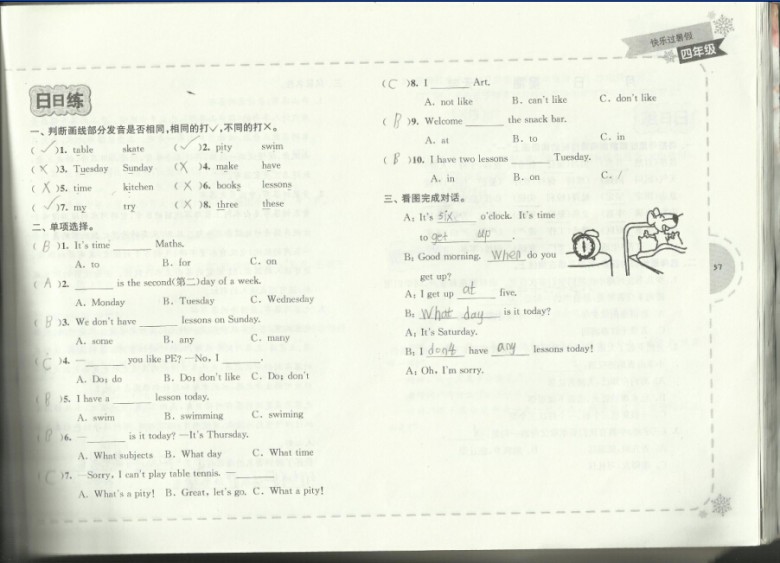 快乐过暑假
四年级
日日练
一、判断画线部分发音是否相同,相同的打✓,不同的打×。
( ✓ )1. table skate ( ✓ )2. pity swim
( X )3. Tuesday Sunday ( X )4. make have
( X )5. time kitchen ( X )6. books lessons
( ✓ )7. my try ( X )8. three these
二、单项选择。
( B )1. It's time ______ Maths.
A. to B. for C. on
( A )2. ______ is the second(第二)day of a week.
A. Monday B. Tuesday C. Wednesday
( B )3. We don't have ______ lessons on Sunday.
A. some B. any C. many
( C )4. —______ you like PE? —No, I ______.
A. Do; do B. Do; don't like C. Do; don't
( B )5. I have a ______ lesson today.
A. swim B. swimming C. swiming
( B )6. —______ is it today? —It's Thursday.
A. What subjects B. What day C. What time
( C )7. —Sorry, I can't play table tennis. —______
A. What's a pity! B. Great, let's go. C. What a pity!
( C )8. I ______ Art.
A. not like B. can't like C. don't like
( B )9. Welcome ______ the snack bar.
A. at B. to C. in
( B )10. I have two lessons ______ Tuesday.
A. in B. on C. /
三、看图完成对话。
A: It's six o'clock. It's time
to get up.
B: Good morning. When do you
get up?
A: I get up at five.
B: What day is it today?
A: It's Saturday.
B: I don't have any lessons today!
A: Oh, I'm sorry.
57